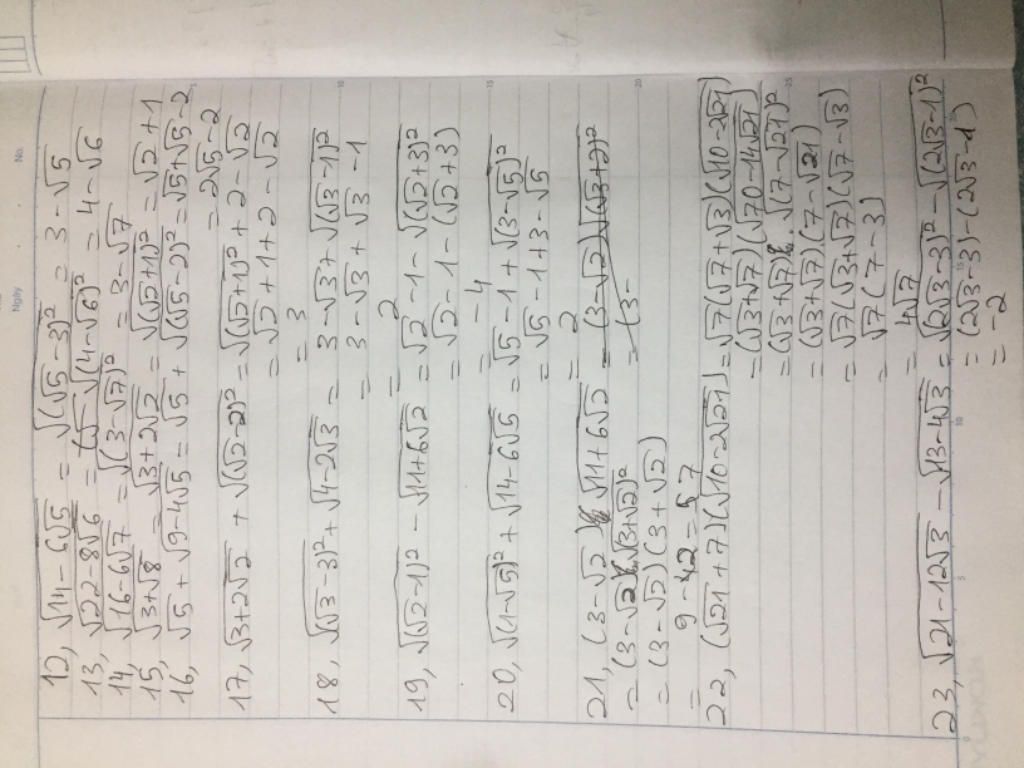 No.
Ngày
12, √(14 − 6√5) = √((√5−3)²) = 3 − √5
13, √(22−8√6) = √((4−√6)²) = 4 − √6
14, √(16−6√7) = √((3−√7)²) = 3 − √7
15, √(3+√8) = √(3+2√2) = √((√2+1)²) = √2 + 1
16, √5 + √(9−4√5) = √5 + √((√5−2)²) = √5 + √5 − 2
= 2√5 − 2
17, √(3+2√2) + √((√2−2)²) = √((√2+1)²) + 2 − √2
= √2 + 1 + 2 − √2
= 3
18, √((√3−3)²) + √(4−2√3) = 3 − √3 + √((√3−1)²)
= 3 − √3 + √3 − 1
= 2
19, √((√2−1)²) − √(11+6√2) = √2 − 1 − √((√2+3)²)
= √2 − 1 − (√2 + 3)
= −4
20, √((1−√5)²) + √(14−6√5) = √5 − 1 + √((3−√5)²)
= √5 − 1 + 3 − √5
= 2
21, (3−√2) √(11+6√2) = (3−√2) √((√3+2)²)
= (3−√2) √((3+√2)²) = (3−
= (3−√2)(3+√2)
= 9 − 2 = 7
22, (√21 + 7)(√(10−2√21)) = √7(√7+√3)(√(10−2√21))
= (√3+√7)(√(70−14√21))
= (√3+√7) . √((7−√21)²)
(√3+√7)(7−√21)
= √7(√3+√7)(√7−√3)
√7(7−3)
= 4√7
23, √(21−12√3) − √(13−4√3) = √((2√3−3)²) − √((2√3−1)²)
= (2√3−3) − (2√3−1)
= −2
5
10
15
20
25